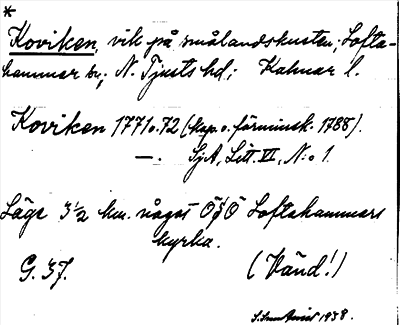 *
Koviken, vik på smålandskusten; Lofta-
hammar sn; N. Tjusts hd; Kalmar l.
Koviken 1771 o. 72 (kop. o. förminsk. 1788).
—. SjA, Litt. VI, N:o 1.
Läge 3 1/2 km. något ÖSÖ Loftahammars
kyrka.
G. 37.
(Vänd!)
1938.